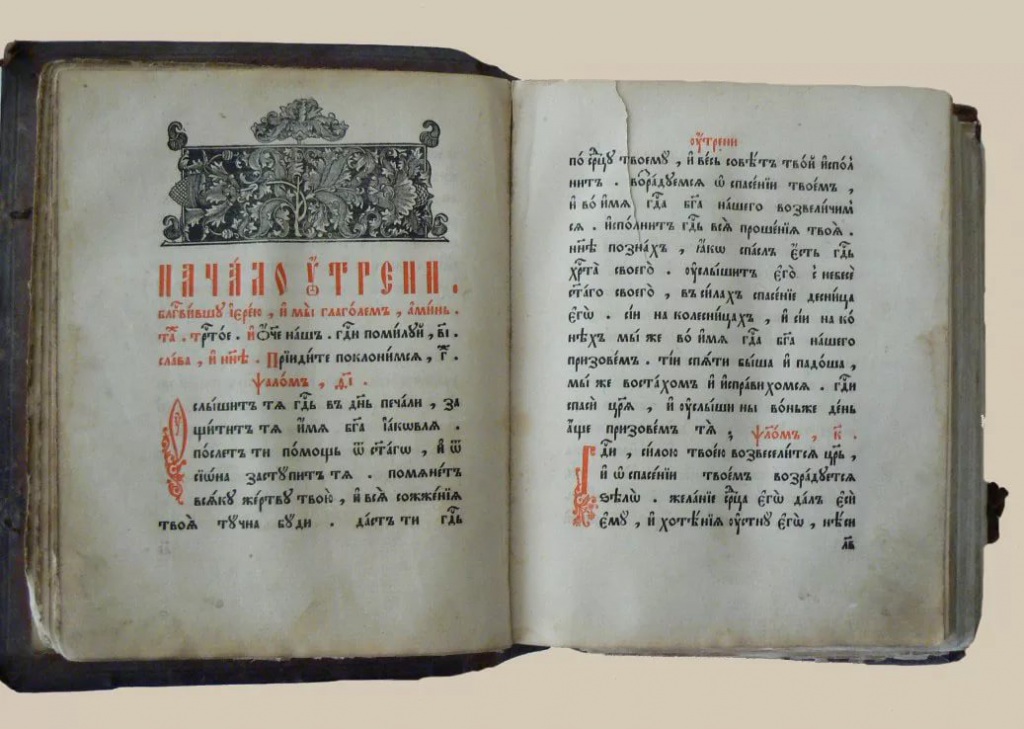 НАЧА́ЛО ОУ҆́ТРЕНИ.
бл҃гви́вшу і҆ере́ю, и҆ мы̀ глаго́лемъ, а҆ми́нь.
та́. трⷭ҇то́е. и҆ ѻ҆́ч҃е нашъ. гдⷭ҇и поми́луй, в҃і.
сла́ва, и҆ нн҃ѣ. Прїиди́те поклони́мся, г҃.
ѱало́мъ, ѳ҃і.
Оу҆слы́шитъ тѧ гдⷭ҇ь въ дн҃ь печа́ли, за
щи́титъ тѧ и҆́мѧ бг҃а і҆а́кѡвлѧ.
по́слетъ ти по́мощь ѿ ст҃а́гѡ, и҆ ѿ
сїѡ́на засту́питъ тѧ. помѧне́тъ
всѧ́ку же́ртву твою̀, и҆ всѧ̀ сожже́нїѧ
твоѧ̀ ту́чна бу́ди. да́стъ ти гдⷭ҇ь
оу҆́трени
по срⷣцу твоему̀, и҆ ве́сь совѣ́тъ тво́й и҆спо́л
нитъ. возра́дуемсѧ ѡ҆ спасе́нїи твое́мъ,
и҆ во и҆́мѧ гдⷭ҇а бг҃а на́шего возвели́чим
сѧ. и҆спо́лнитъ гдⷭ҇ь всѧ̀ проше́нїѧ твоѧ̀.
нн҃ѣ позна́хъ, ꙗ҆́кѡ спа́слъ є҆́сть гдⷭ҇ь
хрⷭ҇та̀ своего̀. оу҆слы́шитъ є҆го̀ с небесѐ
ст҃а́го своего̀, въ си́лахъ спасе́нїе десни́ца
є҆гѡ̀. сі́и на колесни́цахъ, и҆ сі́и на ко́
нехъ мы́ же во и҆́мѧ гдⷭ҇а бг҃а на́шего
призове́мъ. ті́и спѧ́ти бы́ша и҆ падо́ша,
мы́ же воста́хомъ и҆ и҆спра́вихомсѧ. гдⷭ҇и
спасѝ цр҃ѧ̀, и҆ оу҆слы́ши ны̀ во́ньже де́нь
а҆́ще призове́мъ тѧ̀; ѱало́мъ, к҃.
Гдⷭ҇и, си́лою твое́ю возвесели́тсѧ цр҃ь,
и҆ ѡ҆ спасе́нїи твое́мъ возра́дуетсѧ
ѕѣлѡ̀. жела́нїе срⷣца є҆гѡ̀ да́лъ є҆сѝ
є҆му̀, и҆ хотѣ́нїѧ оу҆стну̀ є҆гѡ̀, нѣ́си
лв